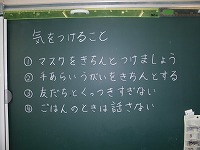 気をつけること
① マスクをきちんとつけましょう
② 手あらいうがいをきちんとする
③ 友だちとくっつきすぎない
④ ごはんのときは話さない